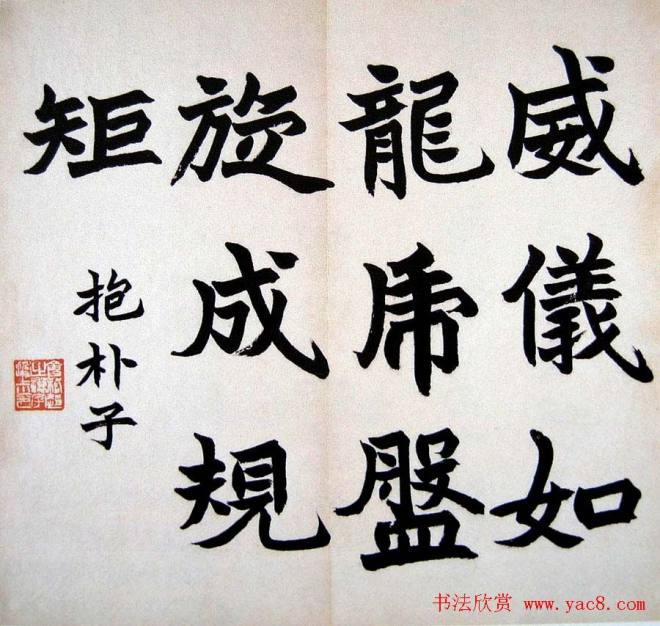 威儀如
龍虎盤
旋成規
矩
抱朴子
书法欣赏 www.yac8.com